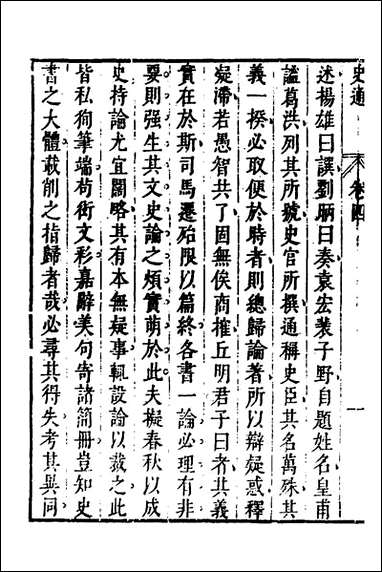 史通 卷四 一
述揚雄曰譔劉昞曰奏袁宏裴子野自題姓名皇甫
謐葛洪列其所號史官所撰通稱史臣其名萬殊其
義一揆必取便於時者則總歸論著所以辯疑惑釋
疑滯若愚智共了固無俟商搉丘明君子曰者其義
實在於斯司馬遷殆限以篇終各書一論必理有非
要則强生其文史論之煩實萌於此夫擬春秋以成
史持論尤宜闊略其有本無疑事輒設論以裁之此
皆私徇筆端苟衒文彩嘉辭美句寄諸簡冊豈知史
書之大體載削之指歸者哉必尋其得失考其異同